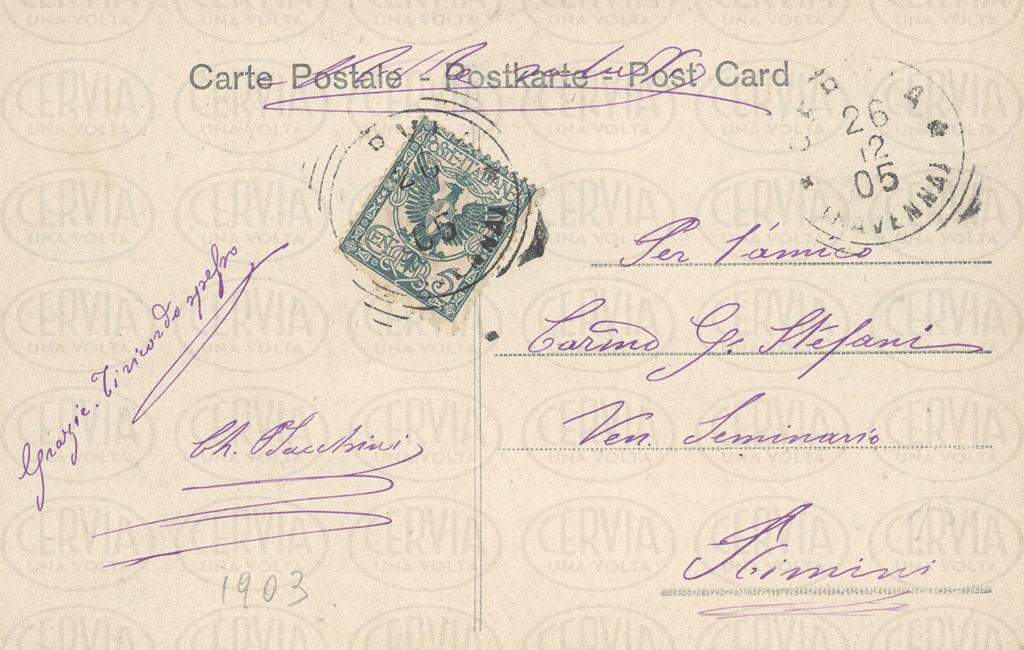 Carte Postale - Postkarte - Post Card
26
12
05
(RAVENNA)
POSTE ITALIANE
CENT. 5
Per l'amico
G. Stefani
Ven. Seminario
Rimini
Grazie. Ti ricordo spesso
Ch.
1903
CERVIA
UNA VOLTA